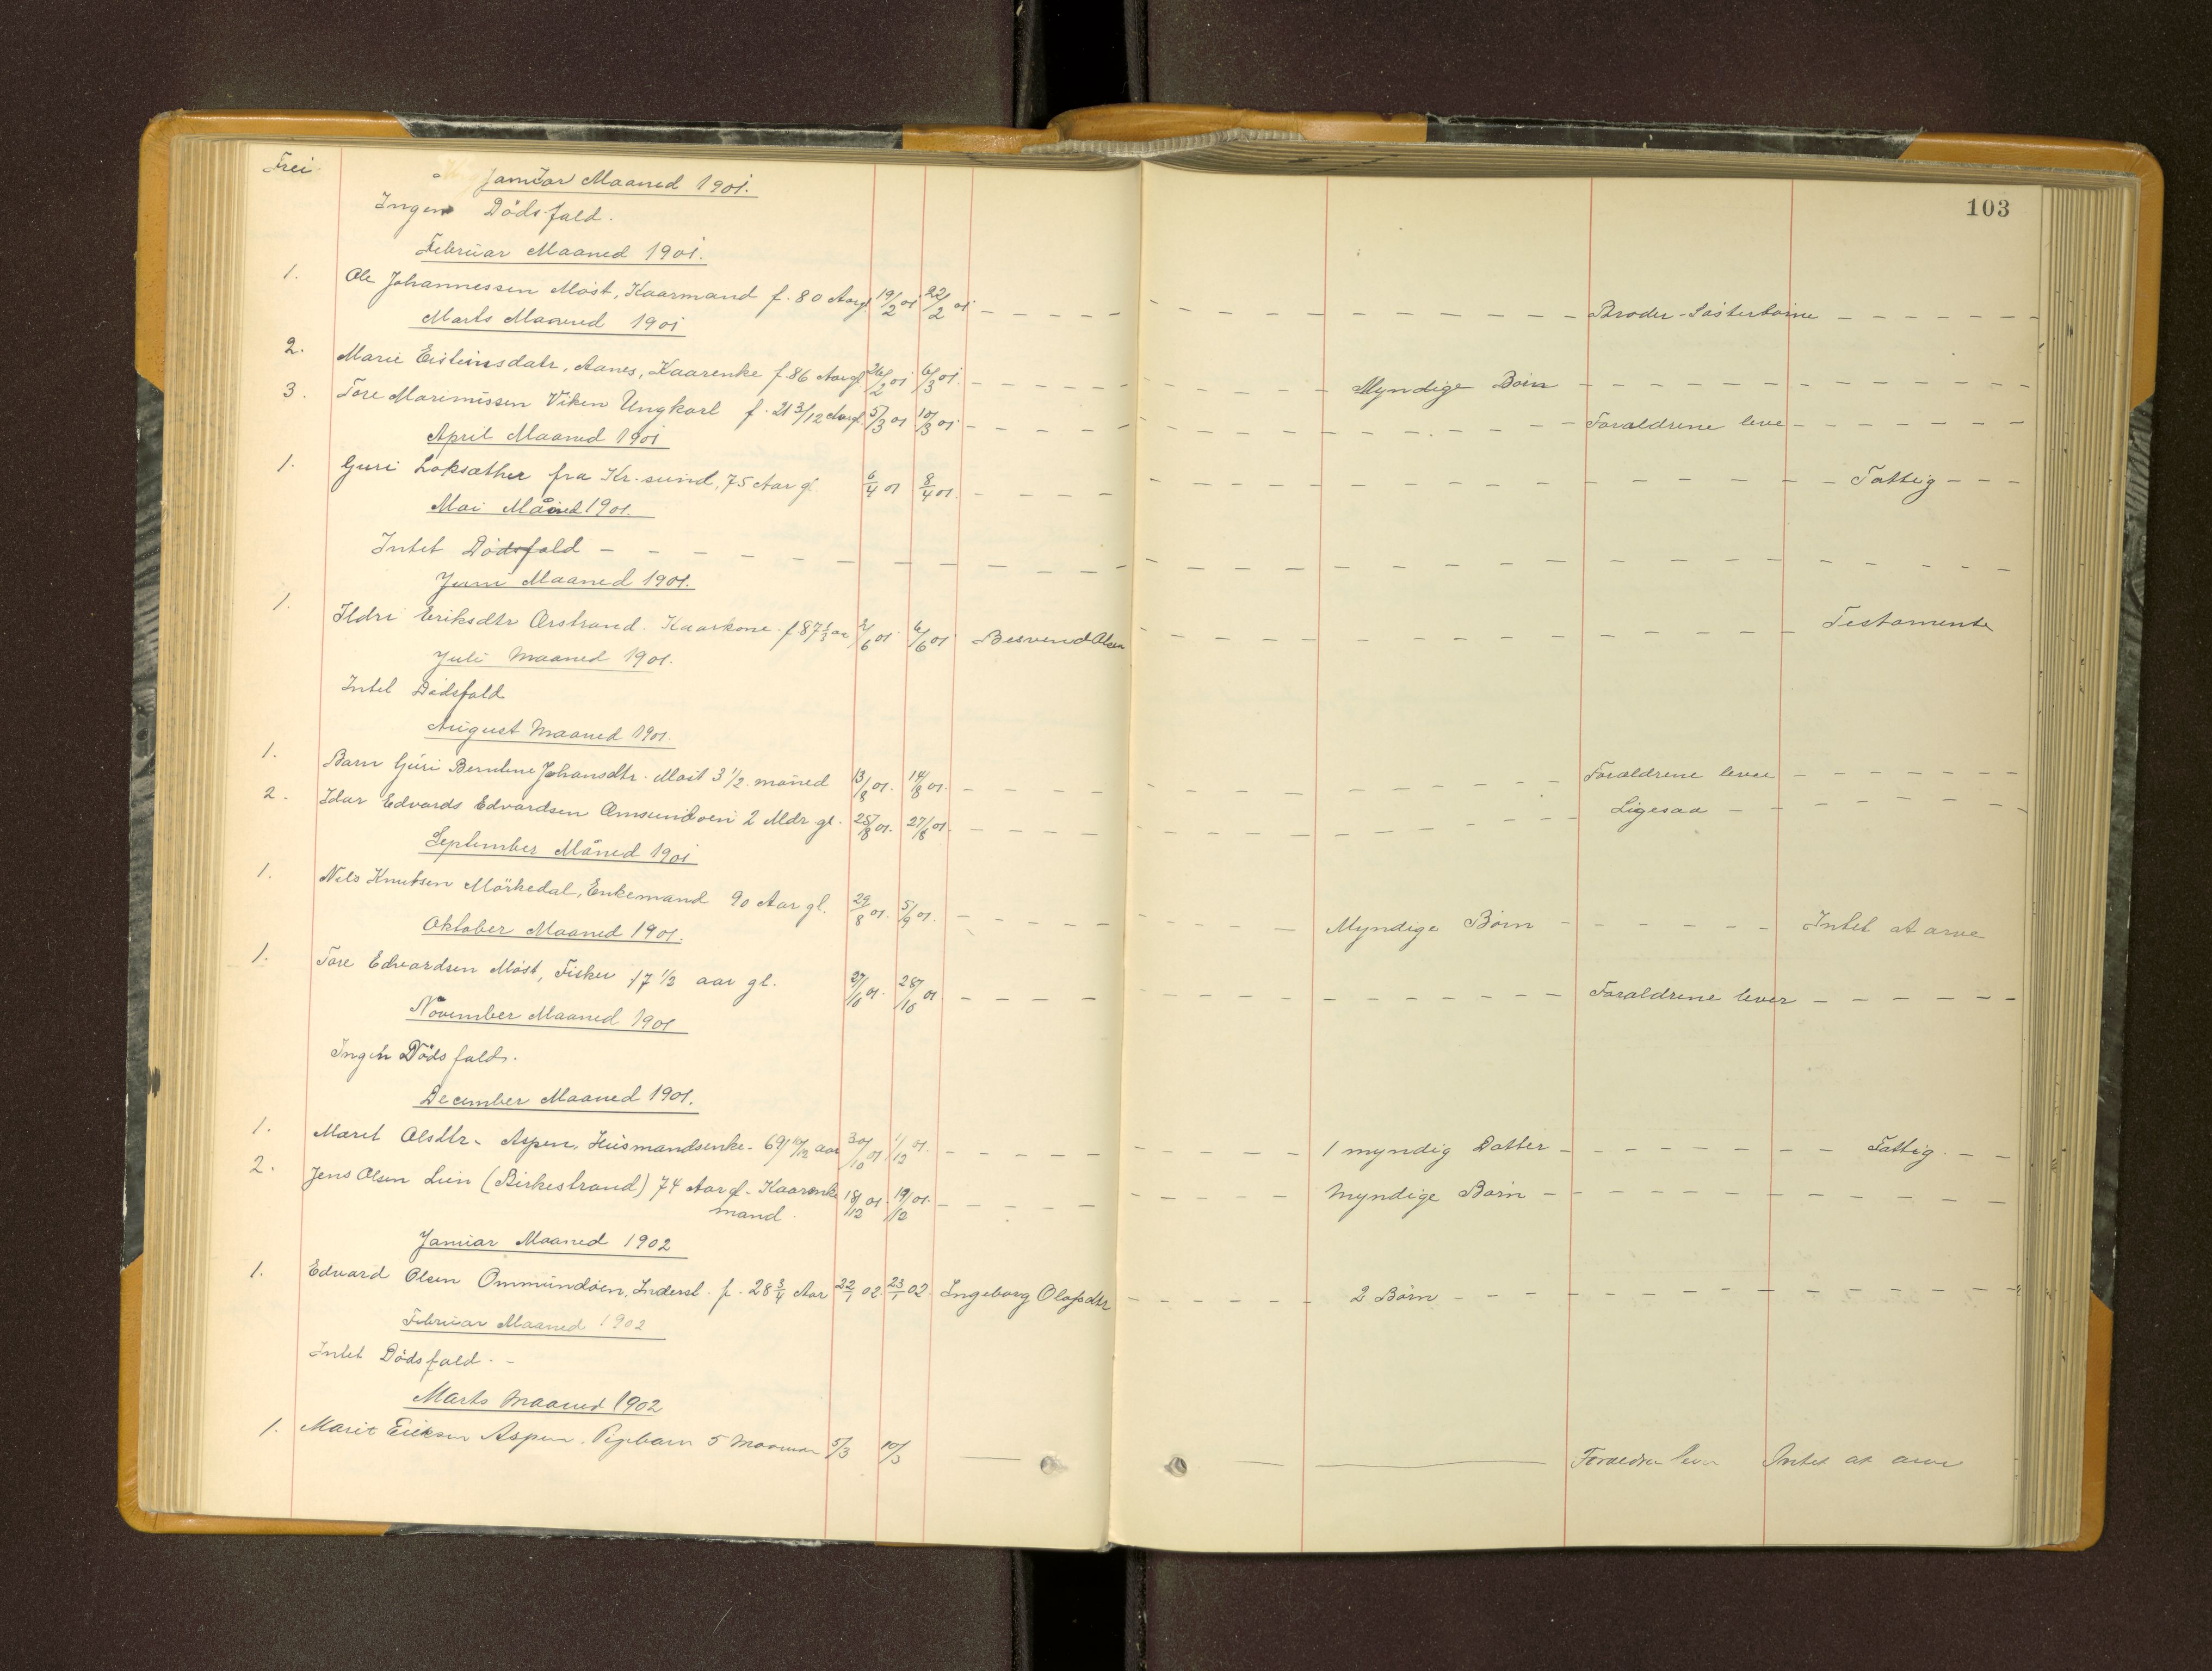 103
Frei. Januar Maaned 1901.
Ingen Dödsfald.
Februar Maaned 1901.
1. Ole Johannessen Möst, Kaarmand f. 80 Aar gl. 19/2 01 22/2 01 - - - Broder-Sösterbörn - - -
Marts Maaned 1901
2. Marie Eisteinsdatr, Aanes, Kaarenke f. 86 Aar gl. 26/2 01 6/3 01. - - - Myndige Börn - - -
3. Tore Viken Ungkarl f. 21 3/12 Aar gl. 5/3 01 10/3 01 - - - Foraldrene leve - - -
April Maaned 1901
1. Guri Loksæther fra Kr.sund, 75 Aar gl. 6/4 01 8/4 01. - - - Fattig - - -
Mai Måned 1901.
Intet Dödsfald - - -
Juni Maaned 1901.
1. Ildri Eriksdtr Orstrand. Kaarkone f 87 1/3 aar 2/6 01. 6/6 01 Olsen - - - Testamente
Juli Maaned 1901.
Intet Dödsfald
August Maaned 1901.
1. Barn Guri Berntine Johansdtr. Möst 3 1/2 måned 13/8 01. 14/8 01. - - - Foraldrene lever - - -
2. Idar Edvards Edvardsen Omsundöen 2 Mdr gl. 25/8 01. 27/8 01. - - - Ligesaa - - -
September Måned 1901
1. Nils Knutsen Mörkedal, Enkemand 90 Aar gl. 29/8 01. 5/9 01. - - - Myndige Börn - - - Intet at arve
Oktober Maaned 1901.
1. Tore Edvardsen Möst, Fisker 17 1/2 aar gl. 27/10 01. 28/10 01. - - - Foraldrene lever - - -
November Maaned 1901
Ingen Dödsfald.
December Maaned 1901.
1. Marit Olsdtr. Aspen, Husmandsenke. 69 10/12 aar 30/10 01 1/12 01. - - - 1 myndig Datter - - - Fattig. - -
2. Jens Olsen Lien (Birkestrand) 74 Aar gl. Kaarenke 18/12 01. 19/12 01. - - - Myndige Börn - - -
mand.
Januar Maaned 1902
1. Edvard Olsen Ommundöen, Inderst. f. 28 3/4 Aar 22/1 02. 23/1 02. Ingeborg Olafsdtr - - - 2 Börn - - -
Februar Maaned 1902
Intet Dödsfald. -
Marts Maaned 1902
1. Marit Eriksen Aspen. Pigebarn 5 Maaneder 5/3 10/3 — — — Forældre lever Intet at arve